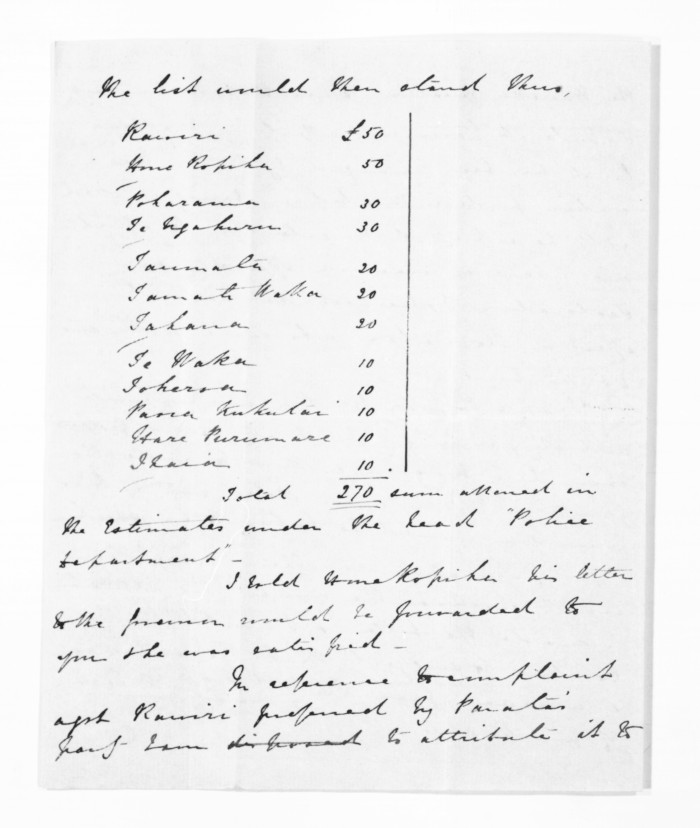 The list would then stand thus,
Rawiri £50
Hone Ropiha 50
Poharama 30
Te Ngahuru 30
Taumata 20
Tamati Waka 20
Tahana 20
Te Waka 10
Ioherua 10
Paora Kukutai 10
Hare Purumare 10
Itaia 10.
Total 270 sum allowed in
the Estimates under the head "Police
Department" -
I told Hone Ropiha his letter
to the Governor would be forwarded to
you & he was satisfied -
In reference to complaint
agst Rawiri preferred by Parata's
party I am disposed to attribute it to